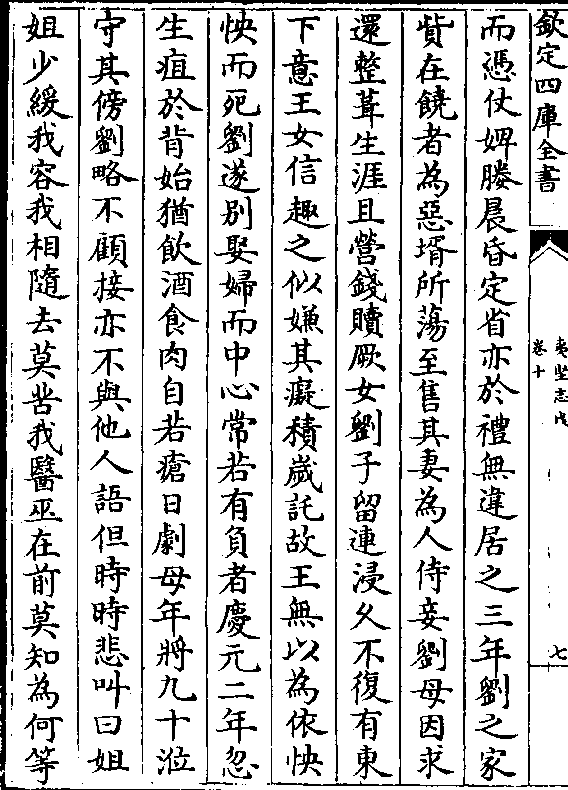 欽定四庫全書
夷堅志戊
卷十
七
而憑仗婢媵晨昏定省亦於禮無違居之三年劉之家
貲在饒者為惡壻所蕩至售其妻為人侍妾劉母因求
還整葺生涯且營錢贖厥女劉子留連浸久不復有東
下意王女信趣之似嫌其癡積歳託故王無以為依怏
怏而死劉遂别娶婦而中心常若有負者慶元二年忽
生疽於背始猶飲酒食肉自若瘡日劇母年將九十涖
守其傍劉略不顧接亦不與他人語但時時悲叫曰姐
姐少緩我容我相隨去莫苦我醫巫在前莫知為何等